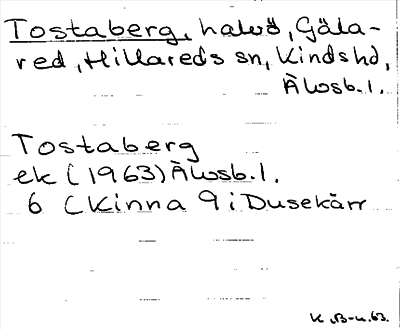 Tostaberg, halvö, Gäla-
red, Hillareds sn, Kinds hd,
Älvsb. l.
Tostaberg
ek (1963) Älvsb. l.
6 (Kinna 9 i Dusekärr
K. 63.